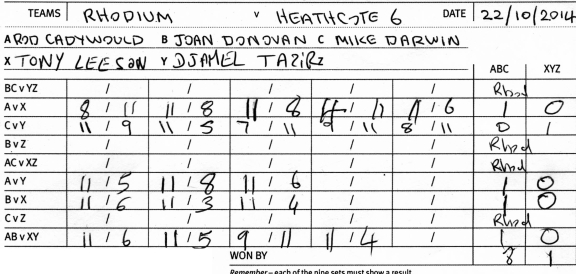 TEAMS RHODIUM v HEATHCOTE 6 DATE 22/10/2014
A ROD CADYWOULD B JOAN DONOVAN C MIKE DARWIN
X TONY LEESON Y DJAMEL TAZIR Z
ABC XYZ
BC v YZ / / / / / Rhod
A v X 8 / 11 11 / 8 11 / 8 4 / 11 11 / 6 1 0
C v Y 11 / 9 11 / 5 7 / 11 9 / 11 8 / 11 0 1
B v Z / / / / / Rhod
AC v XZ / / / / / Rhod
A v Y 11 / 5 11 / 8 11 / 6 / / 1 0
B v X 11 / 6 11 / 3 11 / 4 / / 1 0
C v Z / / / / / Rhod
AB v XY 11 / 6 11 / 5 9 / 11 11 / 4 / 1 0
WON BY 8 1
Remember – each of the nine sets must show a result